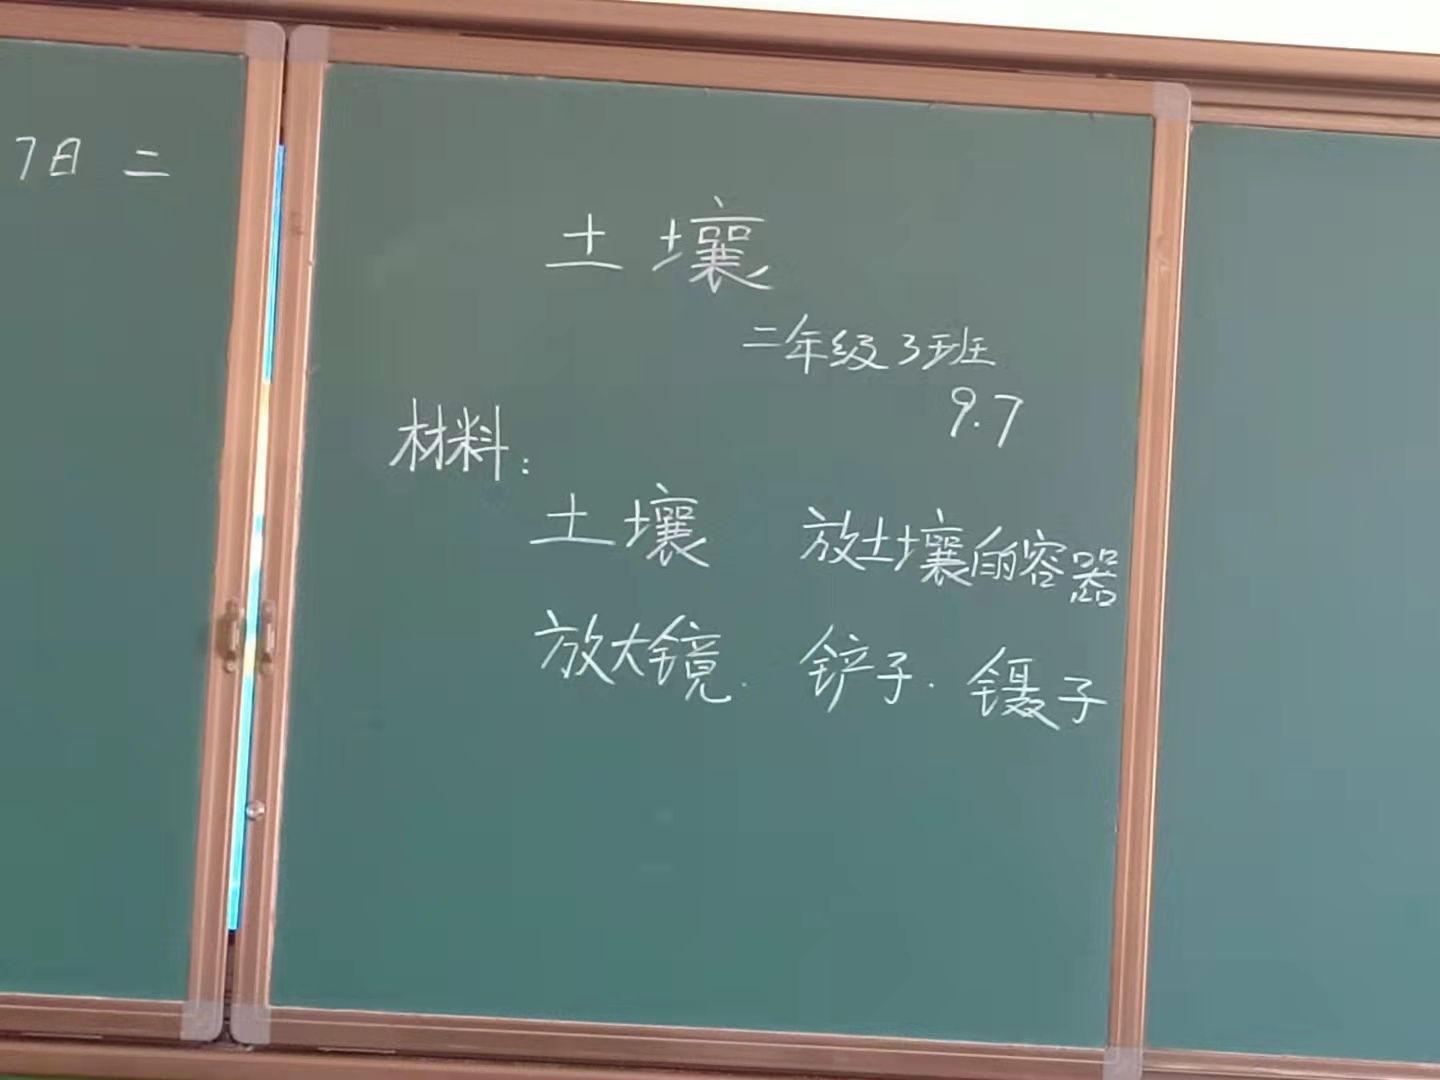 7日 二
土壤
二年级3班
9.7
材料:
土壤 放土壤的容器
放大镜. 铲子. 镊子